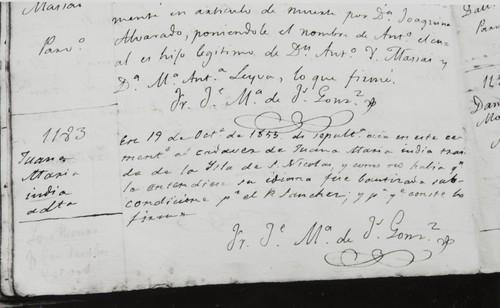 Masias
Parv.º
mente en articulo de muerte por D.ª Joaquina
Alvarado, poniendole el nombre de Ant.º el cu-
al es hijo legitimo de D.n Ant.º Y. Masias y
D.ª M.ª Ant.ª Leyva, lo que firmé.
Fr. J.e M.ª de J.s Gonz.z
1183
Juana
Maria
india
adta
En 19 de Oct.e de 1853 di sepult.ª ecca en este ce-
ment.º al cadaver de Juana Maria india trai-
da de la Isla de S. Nicolas, y como no habia q.n
la entendiese su idioma fue bautizada sub-
condicione p.r el P. Sanchez; y p.ª q.e conste lo
firmé
Fr. J.e M.ª de J.s Gonz.z